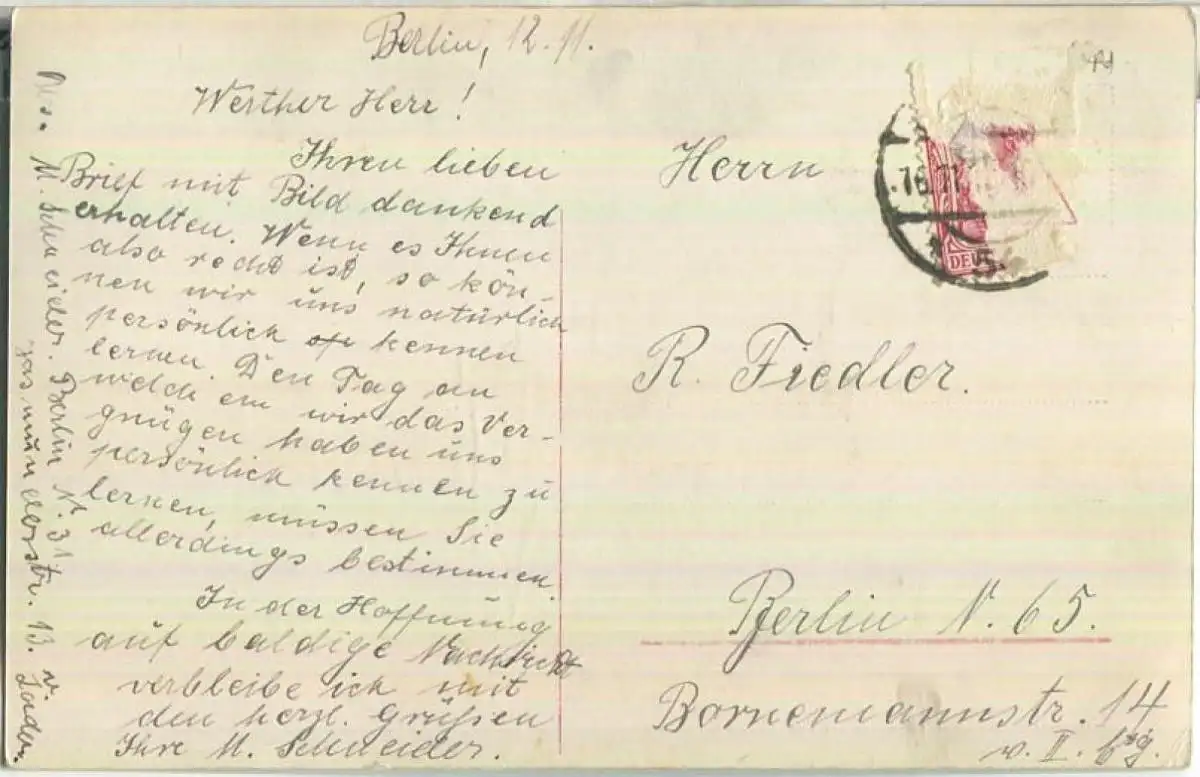 Berlin, 12.11.
Werther Herr!
Ihren lieben
Brief mit Bild dankend
erhalten. Wenn es Ihnen
also recht ist, so kön-
nen wir uns natürlich
persönlich kennen
lernen. Den Tag an
welch em wir das Ver-
gnügen haben uns
persönlich kennen zu
lernen, müssen Sie
allerdings bestimmen.
In der Hoffnung
auf baldige Nachricht
verbleibe ich mit
den herzl. Grüßen
Ihre M. Schneider.
M. Schneider. Berlin N. 31
str. 13. v.
Herrn
R. Fiedler.
Berlin N. 65.
Bornemannstr. 14
v. II.
16.11.
DEU